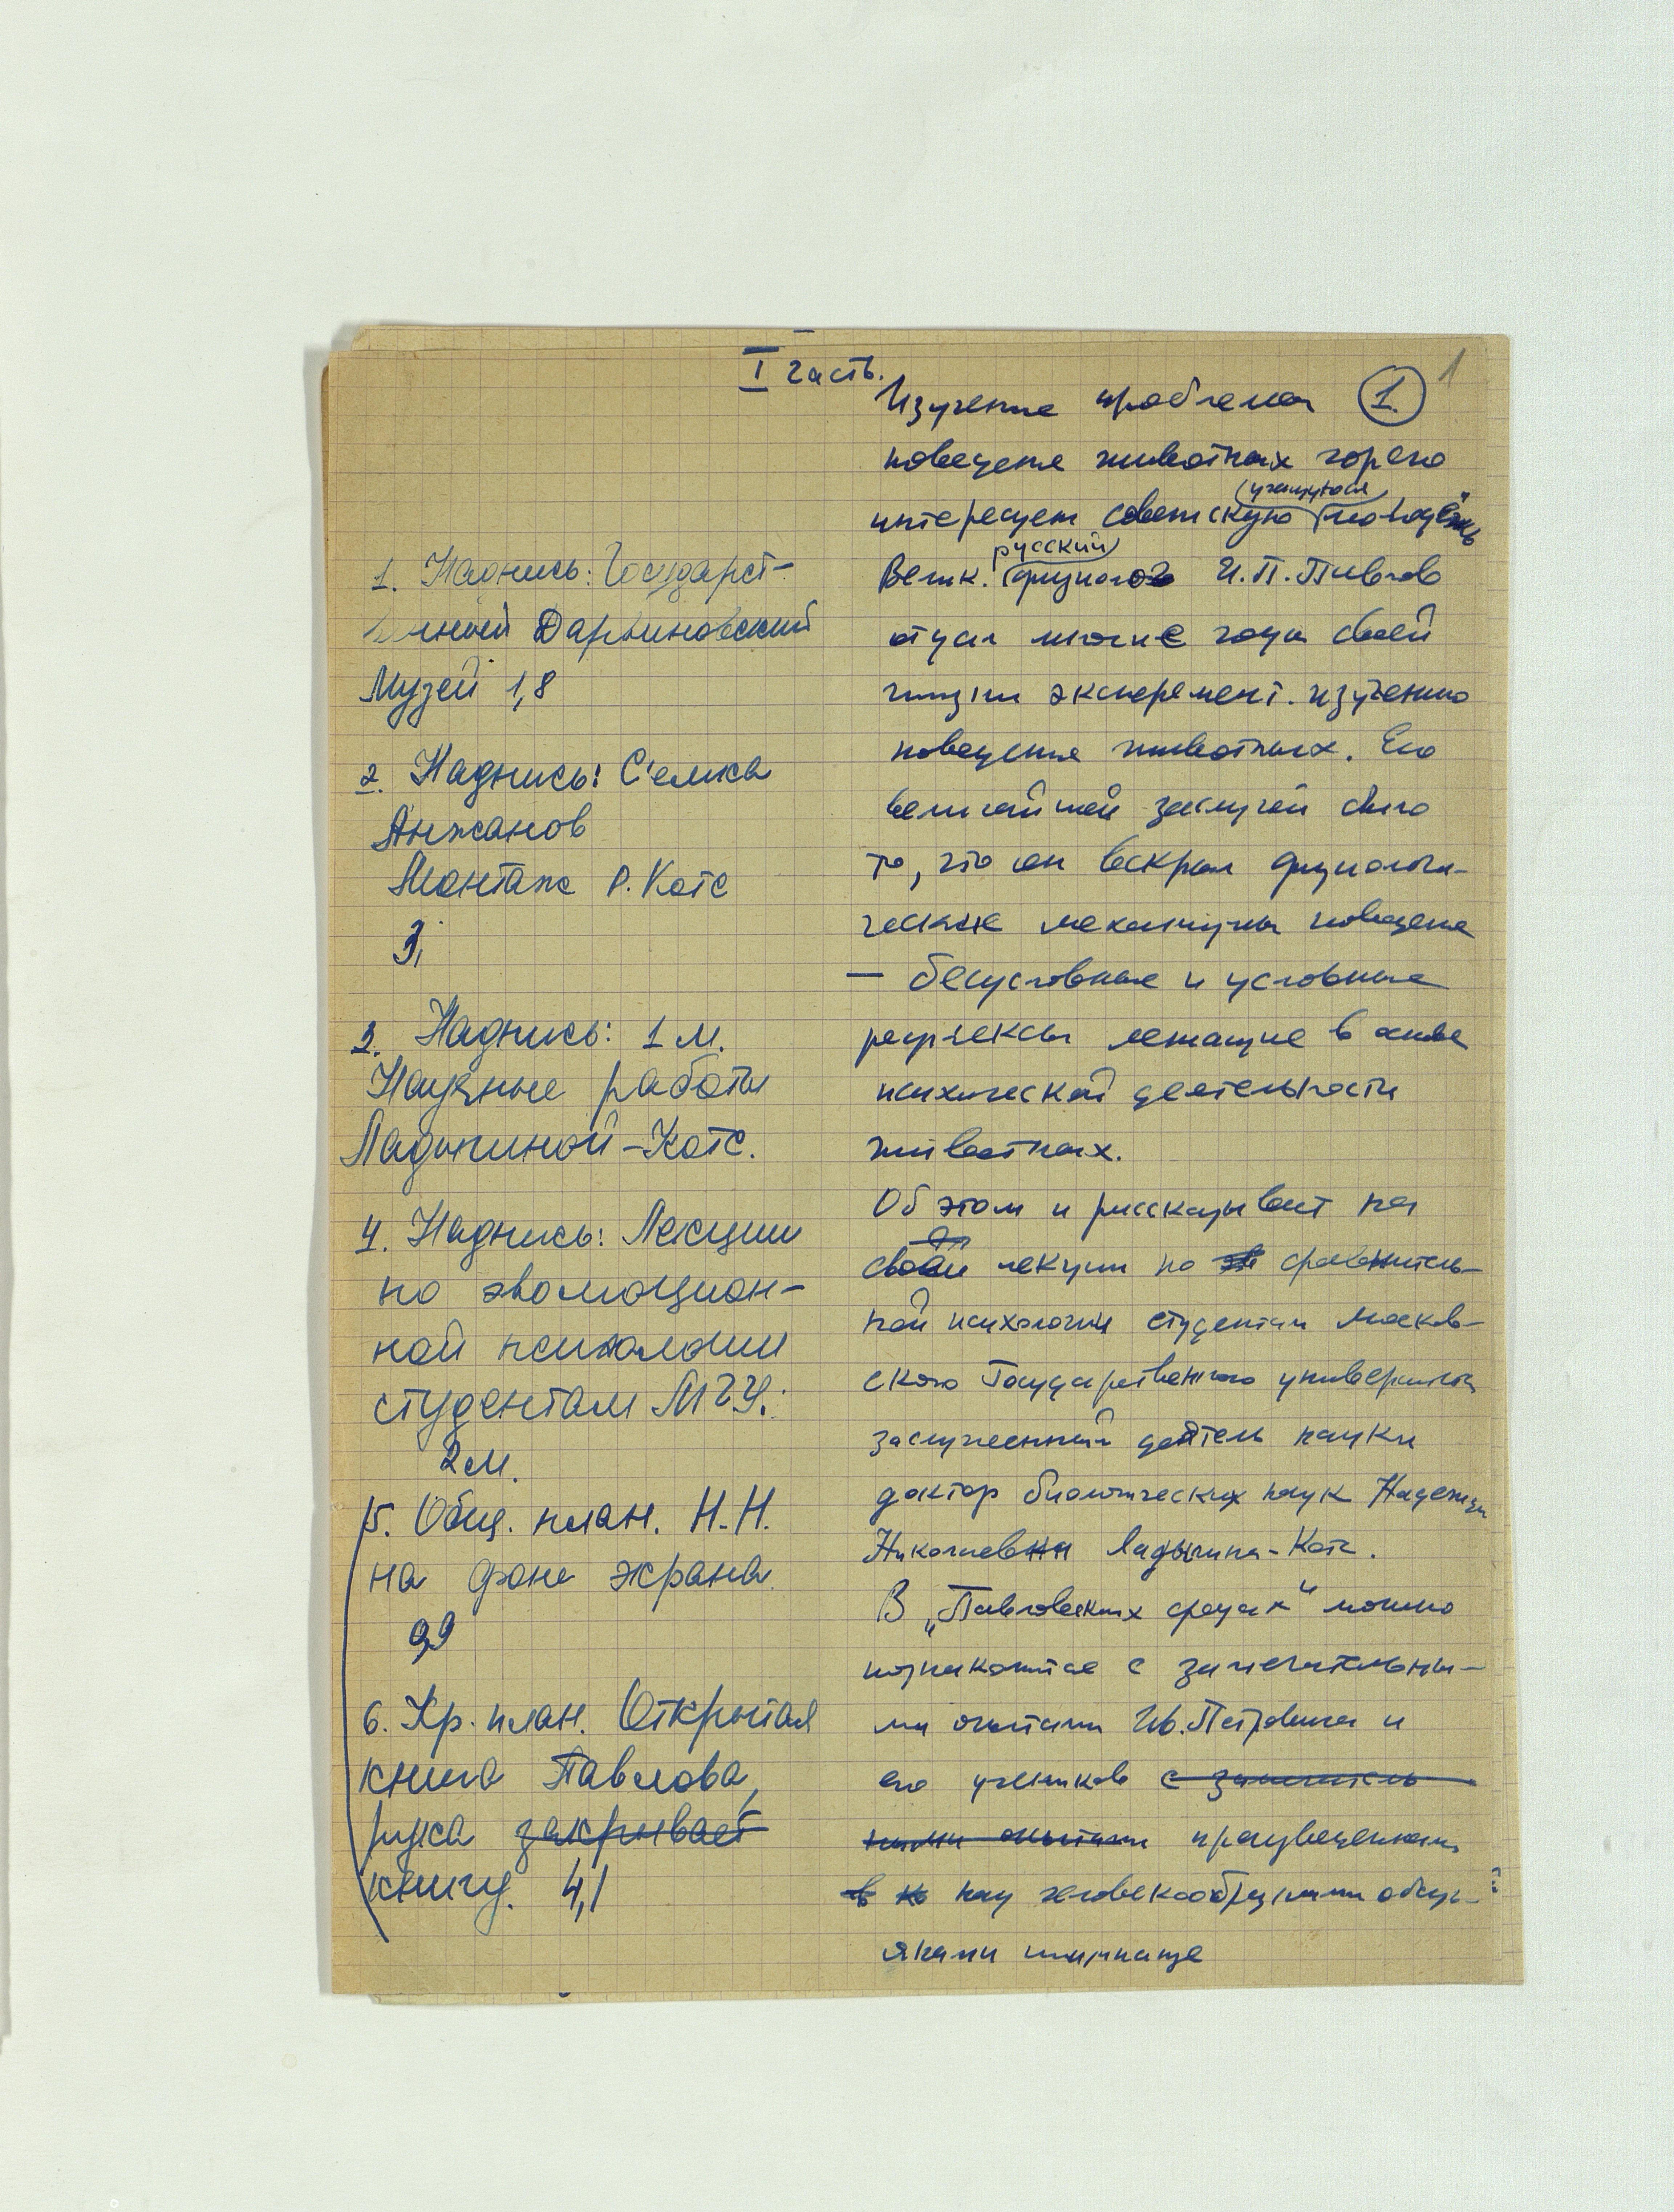 I часть.
1
1.
1. Надпись: Государст-
венный Дарвиновский
Музей 1,8
2. Надпись: С'емка
Анжанов
Монтаж Р. Котс
3,
3. Надпись: 1 м.
Научные работы
Ладыгиной-Котс.
4. Надпись: Лекции
по эволюцион-
ной психологии
студентам МГУ.
2 м.
5. Общ. план. Н.Н.
на фоне экрана.
9,9
6. Кр. план. Открытая
книга Павлова,
рука закрывает
книгу. 4,1
Изучение проблемы
поведения животных горячо
(учащуюся
интересует советскую молодёжь
русский
Велик. физиолог И.П. Павлов
отдал многие годы своей
жизни эксперемент. изучению
поведения животных. Его
величайшей заслугой было
то, что он вскрыл физиологи-
ческие механизмы поведения
— безусловные и условные
рефлексы лежащие в основе
психической деятельности
животных.
Об этом и рассказывает на
своей лекции по сравнитель-
ной психологии студентам Москов-
ского Государственного университета
заслуженный деятель науки
доктор биологических наук Надежда
Николаевна Ладыгина-Котс.
В „Павловских средах" можно
познакомиться с замечательны-
ми опытами Ив. Петровича и
его учеников с замечатель-
ными опытами произведенными
в над человекообразными обезь-
янами шимпанзе